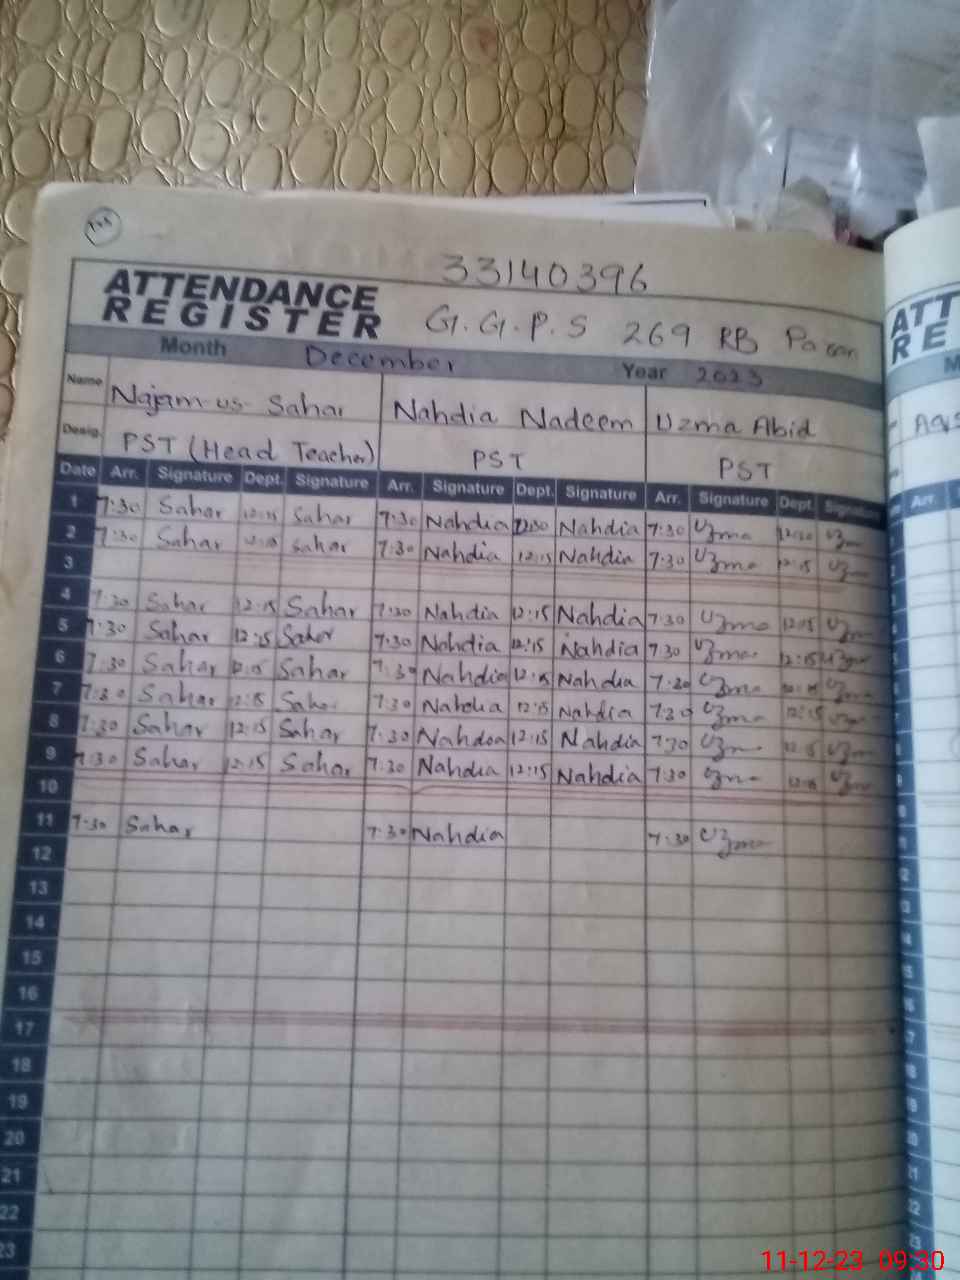 33140396
ATTENDANCE
REGISTER
G.G.P.S 269 RB
Month December Year 2023
Name Najam-us-Sahar Nahdia Nadeem Uzma Abid
Desig. PST (Head Teacher) PST PST
Date Arr. Signature Dept. Signature Arr. Signature Dept. Signature Arr. Signature Dept. Signature Arr.
1 7:30 Sahar 12:15 Sahar 7:30 Nahdia 12:30 Nahdia 7:30 Uzma 12:30 Uzma
2 7:30 Sahar 12:15 Sahar 7:30 Nahdia 12:15 Nahdia 7:30 Uzma 12:15 Uzma
3
4 7:30 Sahar 12:15 Sahar 7:30 Nahdia 12:15 Nahdia 7:30 Uzma 12:15 Uzma
5 7:30 Sahar 12:15 Sahar 7:30 Nahdia 12:15 Nahdia 7:30 Uzma 12:15 Uzma
6 7:30 Sahar 12:15 Sahar 7:30 Nahdia 12:15 Nahdia 7:30 Uzma 12:15 Uzma
7 7:30 Sahar 12:15 Sahar 7:30 Nahdia 12:15 Nahdia 7:30 Uzma 12:15 Uzma
8 7:30 Sahar 12:15 Sahar 7:30 Nahdia 12:15 Nahdia 7:30 Uzma 12:15 Uzma
9 7:30 Sahar 12:15 Sahar 7:30 Nahdia 12:15 Nahdia 7:30 Uzma 12:15 Uzma
10
11 7:30 Sahar 7:30 Nahdia 7:30 Uzma
12
13
14
15
16
17
18
19
20
21
22
23
ATT
RE
11-12-23 09:30